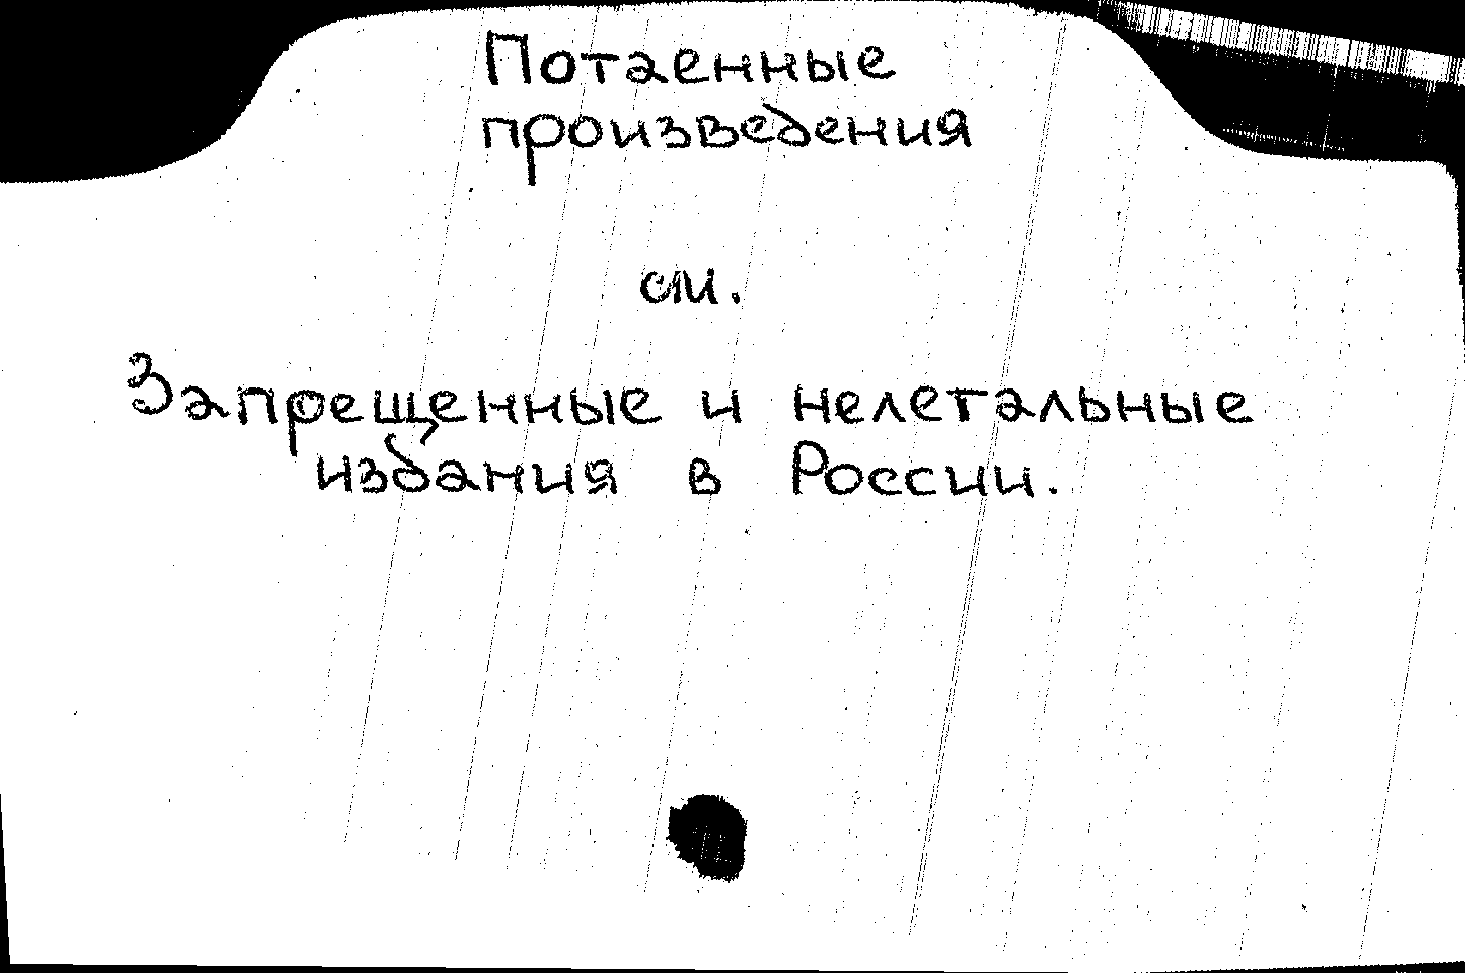 Потаенные
произведения
см.
Запрещенные и нелетальные
издания в России.